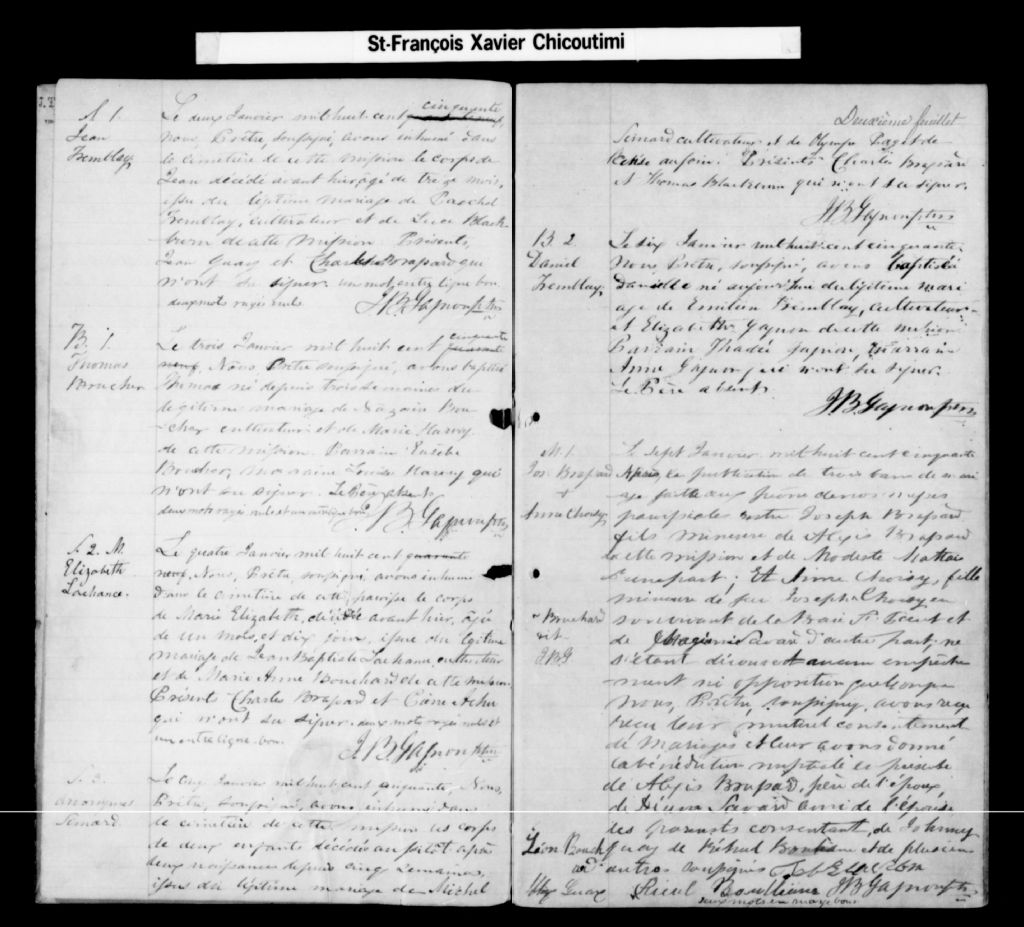 St-François Xavier Chicoutimi
S 1.
Jean
Tremblay
Le deux Janvier mil huit cent cinquante
nous, Prêtre, soussigné, avons inhumé dans
le cimetière de cette mission le corps de
Jean décédé avant hier âgé de treize mois,
issu du légitime mariage de Paschal
Tremblay, cultivateur et de Luce Black-
burn de cette mission. Présents,
Jean Guay et Charles Brassard qui
n'ont su signer. un mot entre ligne bon.
deux mots rayés nuls J.B. Gagnon ptre
B. 1.
Thomas
Boucher
Le trois Janvier mil huit cent cinquante
neuf, Nous Prêtre soussigné, avons baptisé
Thomas né depuis trois semaines du
légitime mariage de Nazaire Bou-
cher cultivateur et de Marie Harvey
de cette mission. Parrain Eusèbe
Boucher, Marraine Louise Harvey qui
n'ont su signer. Le Père absent
deux mots rayés nuls et un entreligne bon. J.B. Gagnon ptre
S. 2. M.
Elizabeth
Lachance.
Le quatre Janvier mil huit cent quarante
neuf, Nous, Prêtre, soussigné avons inhumé
dans le cimetière de cette paroisse le corps
de Marie Elizabeth, décédée avant hier, âgée
de un mois et dix jours, issue du légitime
mariage de Jean Baptiste Lachance, cultivateur
et de Marie Anne Bouchard de cette mission.
Présents Charles Brassard et
qui n'ont su signer. deux mots rayés nuls et
un entre ligne bon.
J.B. Gagnon ptre
S. 3.
anonymes
Simard
Le cinq Janvier mil huit cent cinquante, Nous,
Prêtre, soussigné, avons inhumé dans
le cimetière de cette mission les corps
de deux enfants décédés aussitôt après
leur naissance depuis cinq semaines,
issus du légitime mariage de Michel
Deuxième feuillet
Simard cultivateur et de Olympe
Présents Charles Brassard
et Thomas Blackburn qui n'ont su signer.
J.B. Gagnon ptre
B. 2
Daniel
Tremblay
Le six Janvier mil huit cent cinquante
Nous, Prêtre, soussigné, avons baptisé
né aujourd'hui du légitime mari
age de Emilien Tremblay, cultivateur
et Elizabeth Gagnon de cette mission
Parrain Thadée Gagnon, Marraine
Anne Gagnon qui n'ont su signer.
Le Père absent.
J.B. Gagnon ptre
M. 1
Jos. Brassard
+
Anne Choisy
Le sept Janvier mil huit cent cinquante
Après la publication de trois bans de mari
age faite aux prônes de nos messes
paroissiales entre Joseph Brassard
fils mineur de Alexis Brassard
de cette mission et de Modeste Mathais
d'une part; Et Anne Choisy, fille
mineure de feu Joseph Choisy en
son vivant de la Baie St Paul et
de Savard d'autre part, ne
s'étant découvert aucun empêche
ment ni opposition quelconque
Nous, Prêtre, soussigné, avons reçu
leur mutuel consentement
de Mariage et leur avons donné
la bénédiction nuptiale en présence
de Alexis Brassard, père de l'époux,
de Savard ami de l'épouse
les parents consentant, de Johnny
Guay de Réhul Boulianne et de plusieurs
autres soussignés
+ Bouchard
J.B.G
Léon Bouch
ard
Guay
Boulianne J.B. Gagnon ptre
deux mots en marge bons